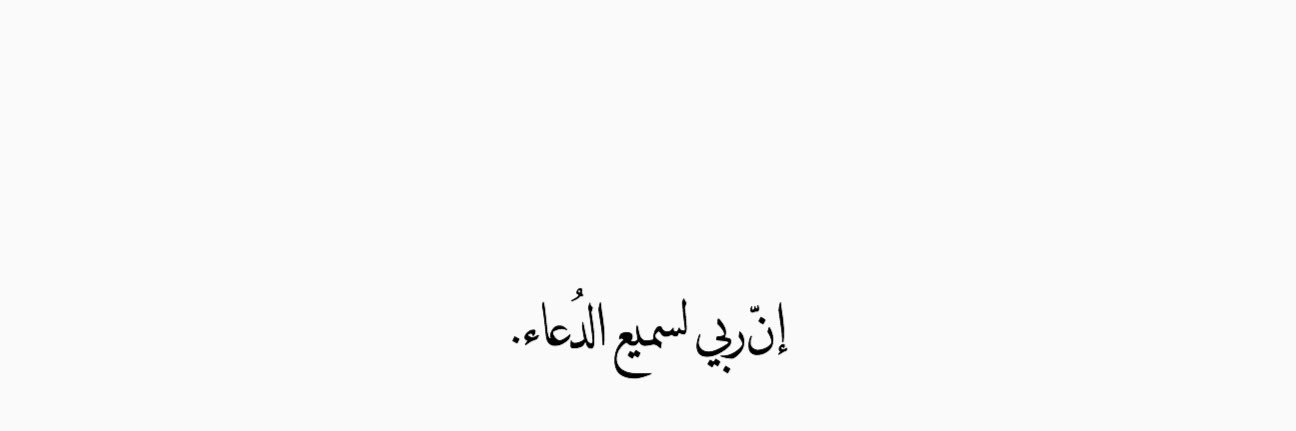 إنّ ربي لسميع الدُعاء.